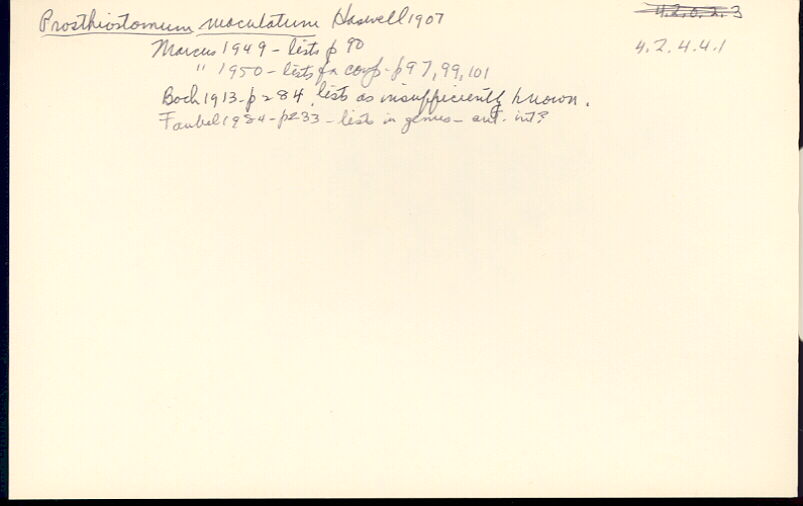 Prosthiostomum maculatum Haswell 1907
4.2.0.2.3
4.2.4.4.1
Marcus 1949 - lists p 90
" 1950 - lists for comp - p 97, 99, 101
Bock 1913 - p 284, lists as insufficiently known.
Faubel 1984 - p 233 - lists in genus - aut. int?